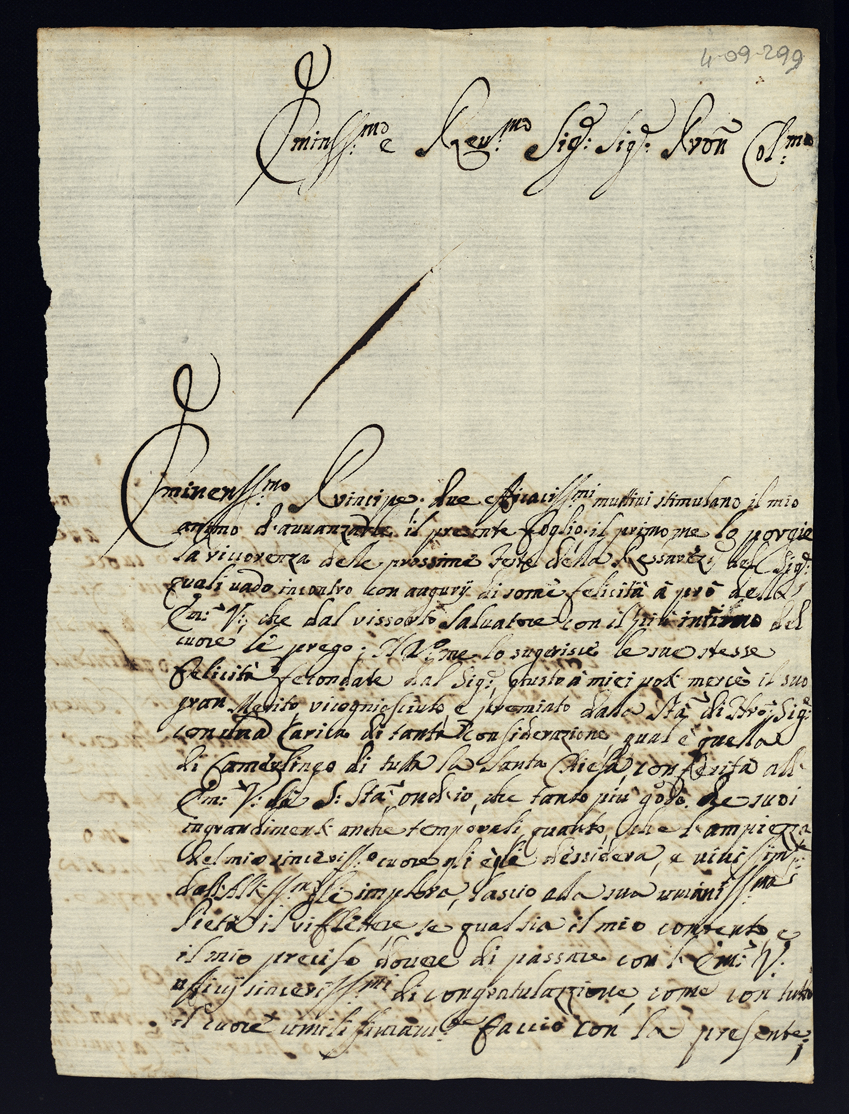 4-09-299
Eminss:mo e Rev:mo Sig: Sig: Pron Col:mo
Eminenss:mo Principe; due efficacissmi mottivi stimulano il mio
animo d'avvanzarle il presente foglio; il primo me lo porgie
la riccorenza delle prossime Feste della Ressurez: del Sig:
quali vado incontro con augurij di some felicità à prò dell'
Em: V: che dal rissorto Salvatore con il più intimo del
cuore le prego; il me lo sugerisce le sue stesse
felicità fecondate dal Sig: giusto à miei voti mercè il suo
gran Merito ricogniosciuto e premiato dalla Stà di Nro: Sig:
con una Carica di tanta considerazione qual è quella
di Camerlingo di tutta la Santa Chiesa, conferita all'
Em: V: da S: Stà onde io, che tanto più godo de suoi
ingrandimenti anche temporali, quanto, che l'ampiezza
del mio sinceriss:o cuore gli è le dessidera, e
dall'Altiss:mo le implora, lascio alla sua umaniss:ma
Pietà il riflettere se qual sia il mio contento e
il mio preciso dovere di passare con l'Em: V:
ufficij sincerissmi di congratulazzione, come con tutto
il cuore umilissimam:te faccio con la presente